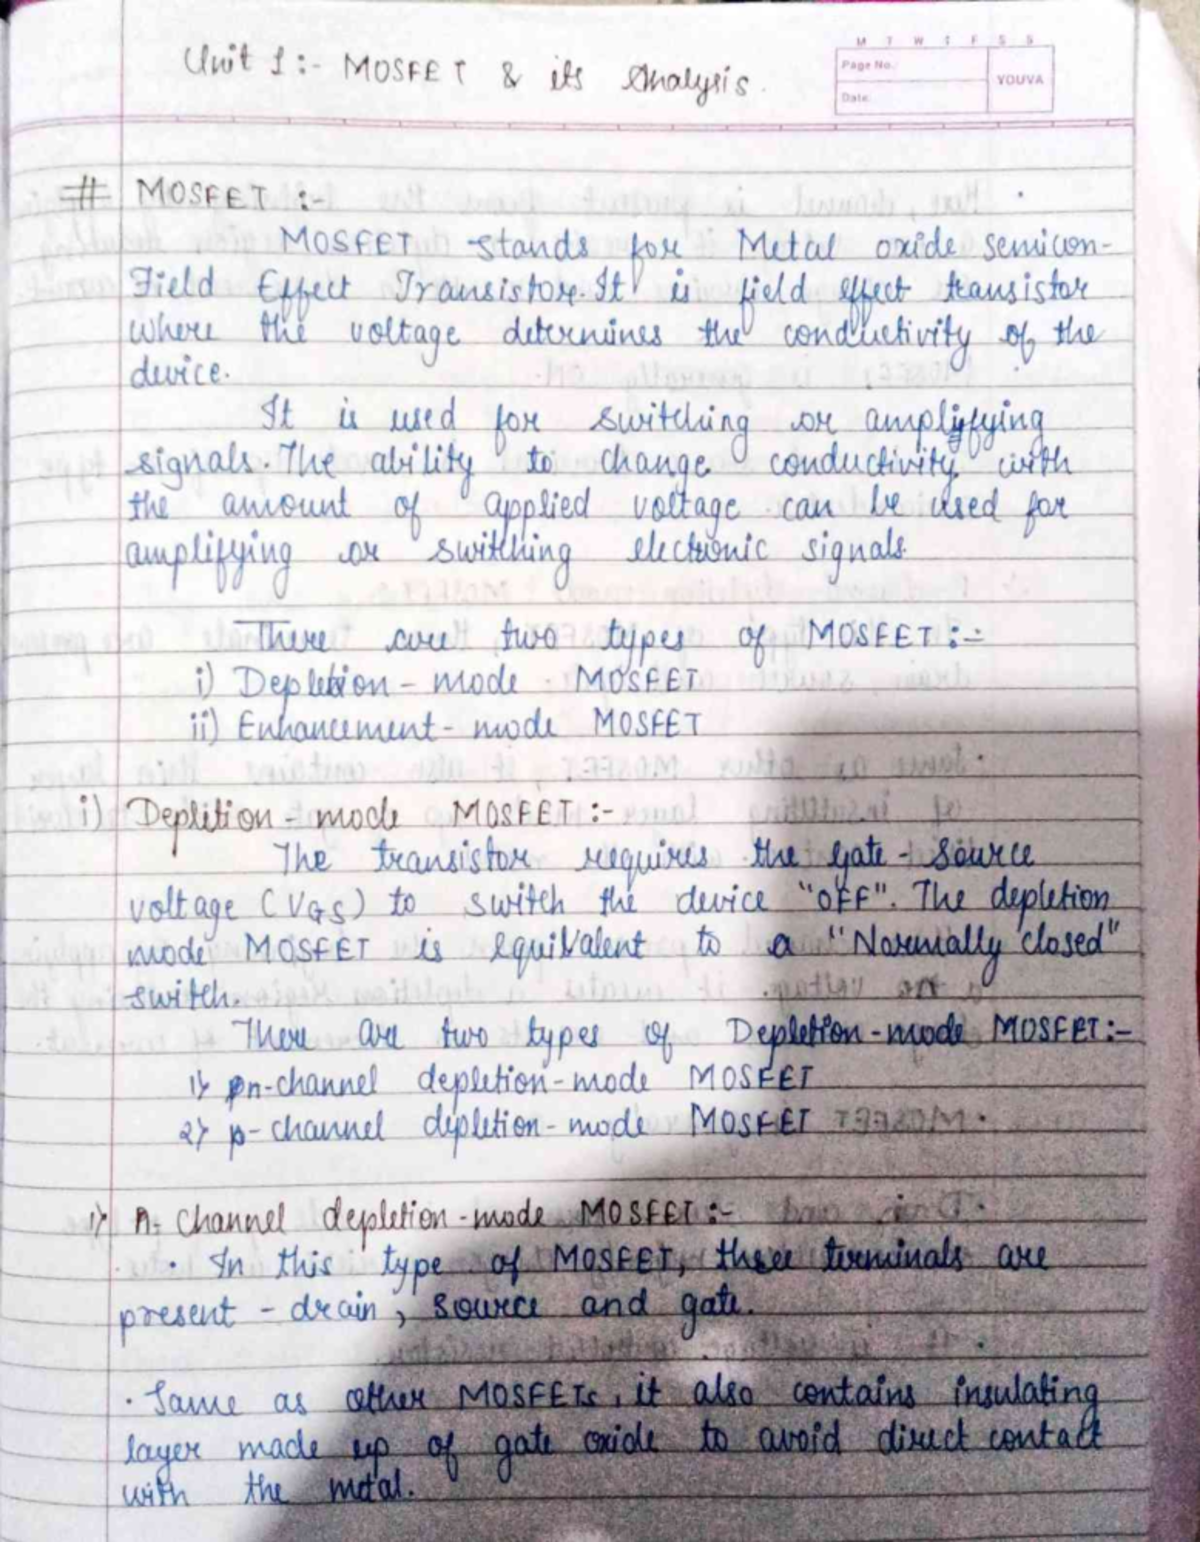 Unit 1:- MOSFET & its Analysis.
M T W T F S S
Page No.:
YOUVA
Date:
# MOSFET :-
MOSFET stands for Metal oxide semicon-
Field Effect Transistor. It is field effect transistor
where the voltage determines the conductivity of the
device.
It is used for switching or amplifying
signals. The ability to change conductivity with
the amount of applied voltage can be used for
amplifying or switching electronic signals.
There are two types of MOSFET :-
i) Depletion - mode MOSFET
ii) Enhancement - mode MOSFET
i) Depletion - mode MOSFET :-
The transistor requires the gate - source
voltage (VGS) to switch the device "OFF". The depletion
mode MOSFET is equivalent to a "Normally closed"
switch.
There are two types of Depletion-mode MOSFET:-
1) n-channel depletion-mode MOSFET
2) p-channel depletion-mode MOSFET
1) n-channel depletion-mode MOSFET:-
• In this type of MOSFET, three terminals are
present - drain, source and gate.
• Same as other MOSFETs, it also contains insulating
layer made up of gate oxide to avoid direct contact
with the metal.